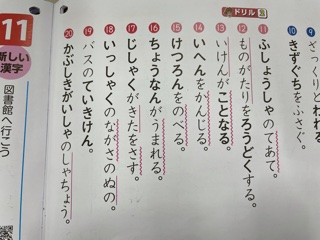 ドリル
⑨ ざっくりとわれる
⑩ きずぐちをふさぐ。
⑪ ふしょうしゃのてあて。
⑫ ものがたりをろうどくする。
⑬ いけんがことなる。
⑭ いへんをかんじる。
⑮ けつろんをのべる。
⑯ ちょうなんがうまれる。
⑰ じしゃくがきたをさす。
⑱ いっしゃくのながさのぬの。
⑲ バスのていきけん。
⑳ かぶしきがいしゃのしゃちょう。
11
新しい
漢字
図書館へ行こう